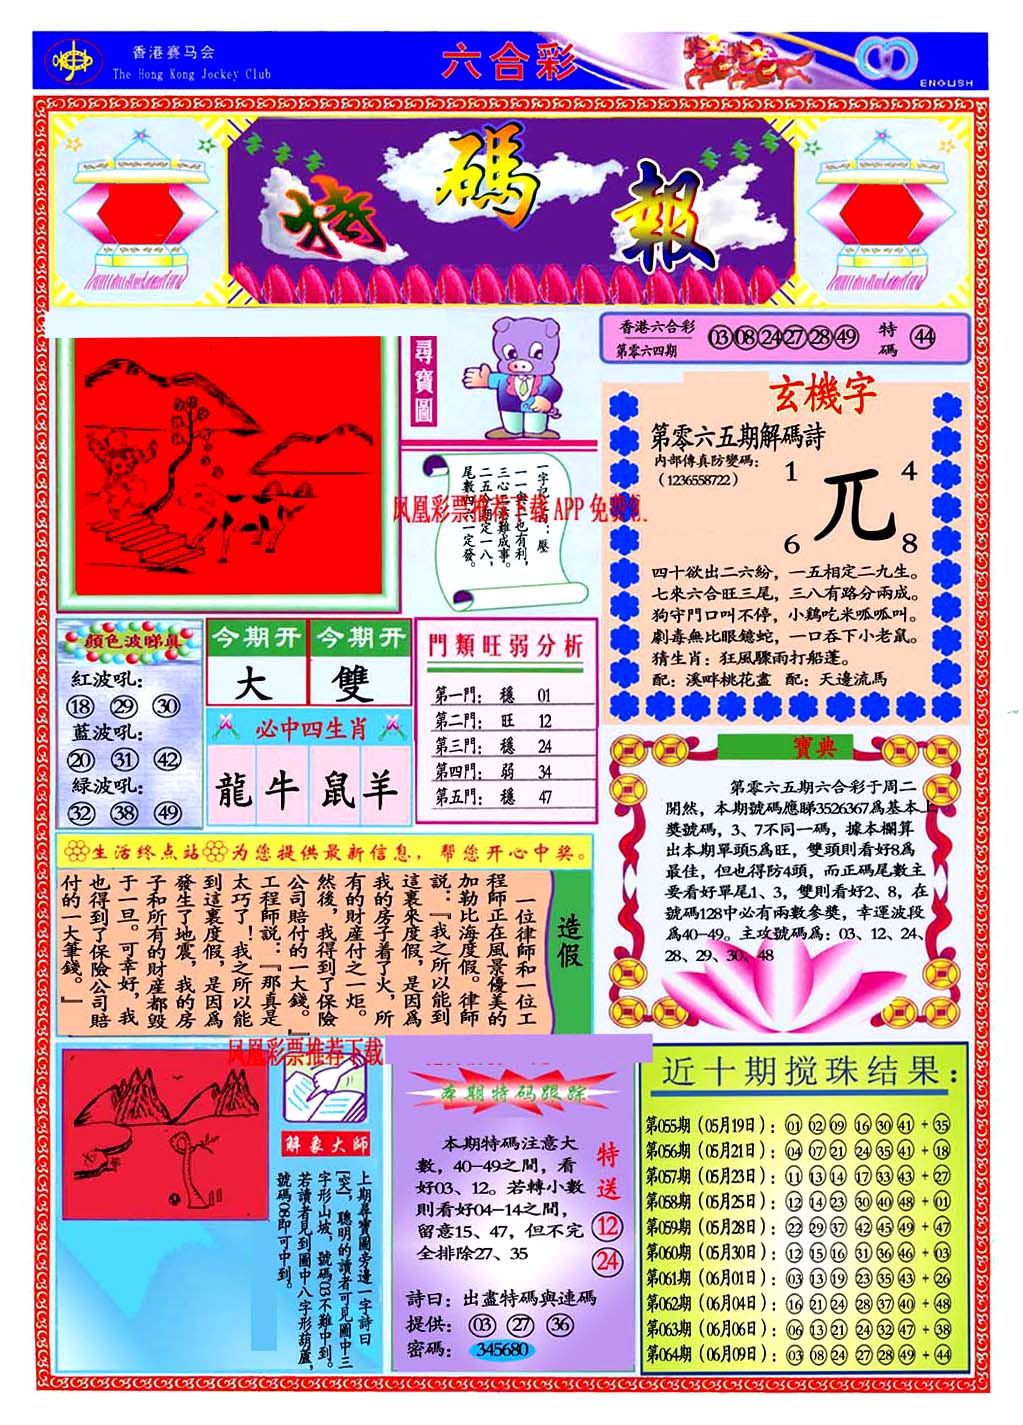 香港赛马会
The Hong Kong Jockey Club
六合彩
ENGLISH
特碼報
尋寶圖
香港六合彩
第零六四期
03 08 24 27 28 49
特碼
44
玄機字
第零六五期解碼詩
内部傳真防變碼:
(1236558722)
1 4
兀
6 8
四十欲出二六紛，一五相定二九生。
七來六合旺三尾，三八有路分兩成。
狗守門口叫不停，小鷄吃米呱呱叫。
劇毒無比眼鏡蛇，一口吞下小老鼠。
猜生肖: 狂風驟雨打船蓬。
配: 溪畔桃花盡 配: 天邊流馬
三心二
二五今期定一八，
尾數四六一定發。
凤凰彩票推荐下载 APP
顔色波睇真
紅波吼:
18 29 30
藍波吼:
20 31 42
綠波吼:
32 38 49
今期开 今期开
大 雙
必中四生肖
龍 牛 鼠 羊
門類旺弱分析
第一門: 穩 01
第二門: 旺 12
第三門: 穩 24
第四門: 弱 34
第五門: 穩 47
寶典
第零六五期六合彩于周二
開然，本期號碼應睇3526367爲基本上
獎號碼，3、7不同一碼，據本欄算
出本期單頭5爲旺，雙頭則看好8爲
最佳，但也得防4頭，而正碼尾數主
要看好單尾1、3，雙則看好2、8，在
號碼128中必有兩數參獎，幸運波段
爲40—49。主攻號碼爲: 03、12、24、
28、29、30、48
生活终点站 为您提供最新信息，帮您开心中奖。
造假
一位律師和一位工
程師正在風景優美的
加勒比海度假。律師
説:『我之所以能到
這裏來度假，是因爲
我的房子着了火，所
有的財産付之一炬。
然後，我得到了保險
公司賠付的一大錢。』
工程師説:『那真是
太巧了！我之所以能
到這裏度假，是因爲
發生了地震，我的房
子和所有的財産都毁
于一旦。可幸好，我
也得到了保險公司賠
付的一大筆錢。』
凤凰彩票推荐下载
解象大師
上期尋寶圖旁邊一字詩曰
[突]，聰明的讀者可見圖中三
字形山坡，號碼03不難中到。
若讀者見到圖中八字形葫蘆，
號碼08即可中到。
本期特码跟踪
本期特碼注意大
數，40—49之間，看
好03、12。若轉小數
則看好04—14之間，
留意15、47，但不完
全排除27、35
特送
12
24
詩曰: 出盡特碼與連碼
提供: 03 27 36
密碼: 345680
近十期搅珠结果:
第055期 (05月19日): 01 02 09 16 30 41 + 35
第056期 (05月21日): 04 07 21 24 35 41 + 18
第057期 (05月23日): 11 13 14 17 33 43 + 27
第058期 (05月25日): 12 14 23 30 40 48 + 01
第059期 (05月28日): 22 29 37 42 45 49 + 47
第060期 (05月30日): 12 15 16 31 36 46 + 03
第061期 (06月01日): 03 13 19 23 35 43 + 26
第062期 (06月04日): 16 21 24 28 37 40 + 48
第063期 (06月06日): 06 13 21 24 32 47 + 38
第064期 (06月09日): 03 08 24 27 28 49 + 44